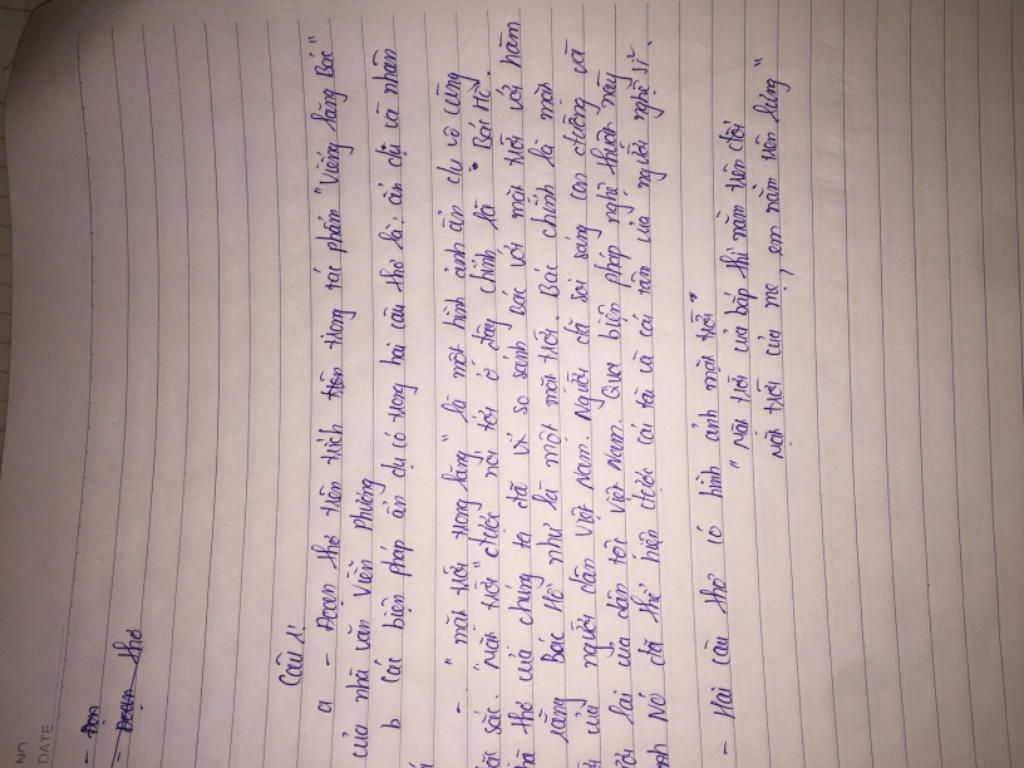 NO
DATE
- Đọn
- Đoạn thơ
Câu 1.
a - Đoạn thơ trên trích trên trong tác phẩm "Viếng lăng Bác"
của nhà văn Viễn Phương
b Các biện pháp ẩn dụ có trong hai câu thơ là: ẩn dụ và nhân
- "mặt trời trong lăng" là một hình ảnh ẩn dụ vô cùng
sắc. "Mặt trời" được nói tới ở đây chính là Bác Hồ.
thơ của chúng ta đã ví so sánh Bác với mặt trời với hàm
rằng Bác Hồ như là một mặt trời. Bác chính là mặt
của người dân Việt Nam. Người đã soi sáng con đường và
lai của dân tộc Việt Nam. Qua biện pháp nghệ thuật này
Nó đã thể hiện được cái ta và cái tâm của người nghệ sĩ.
- Hai câu thơ có hình ảnh mặt trời
"Mặt trời của bắp thì nằm trên đồi
Mặt trời của mẹ, em nằm trên lưng"